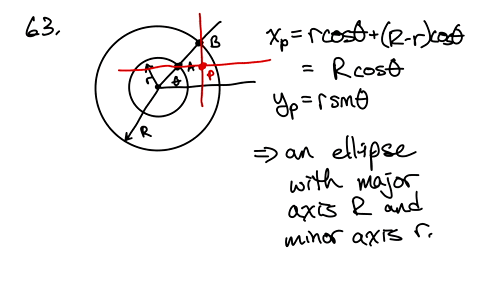 63.
x_p = rcosθ + (R-r)cosθ
= Rcosθ
y_p = rsinθ
⇒ an ellipse
with major
axis R and
minor axis r.
B
A
P
r
θ
R